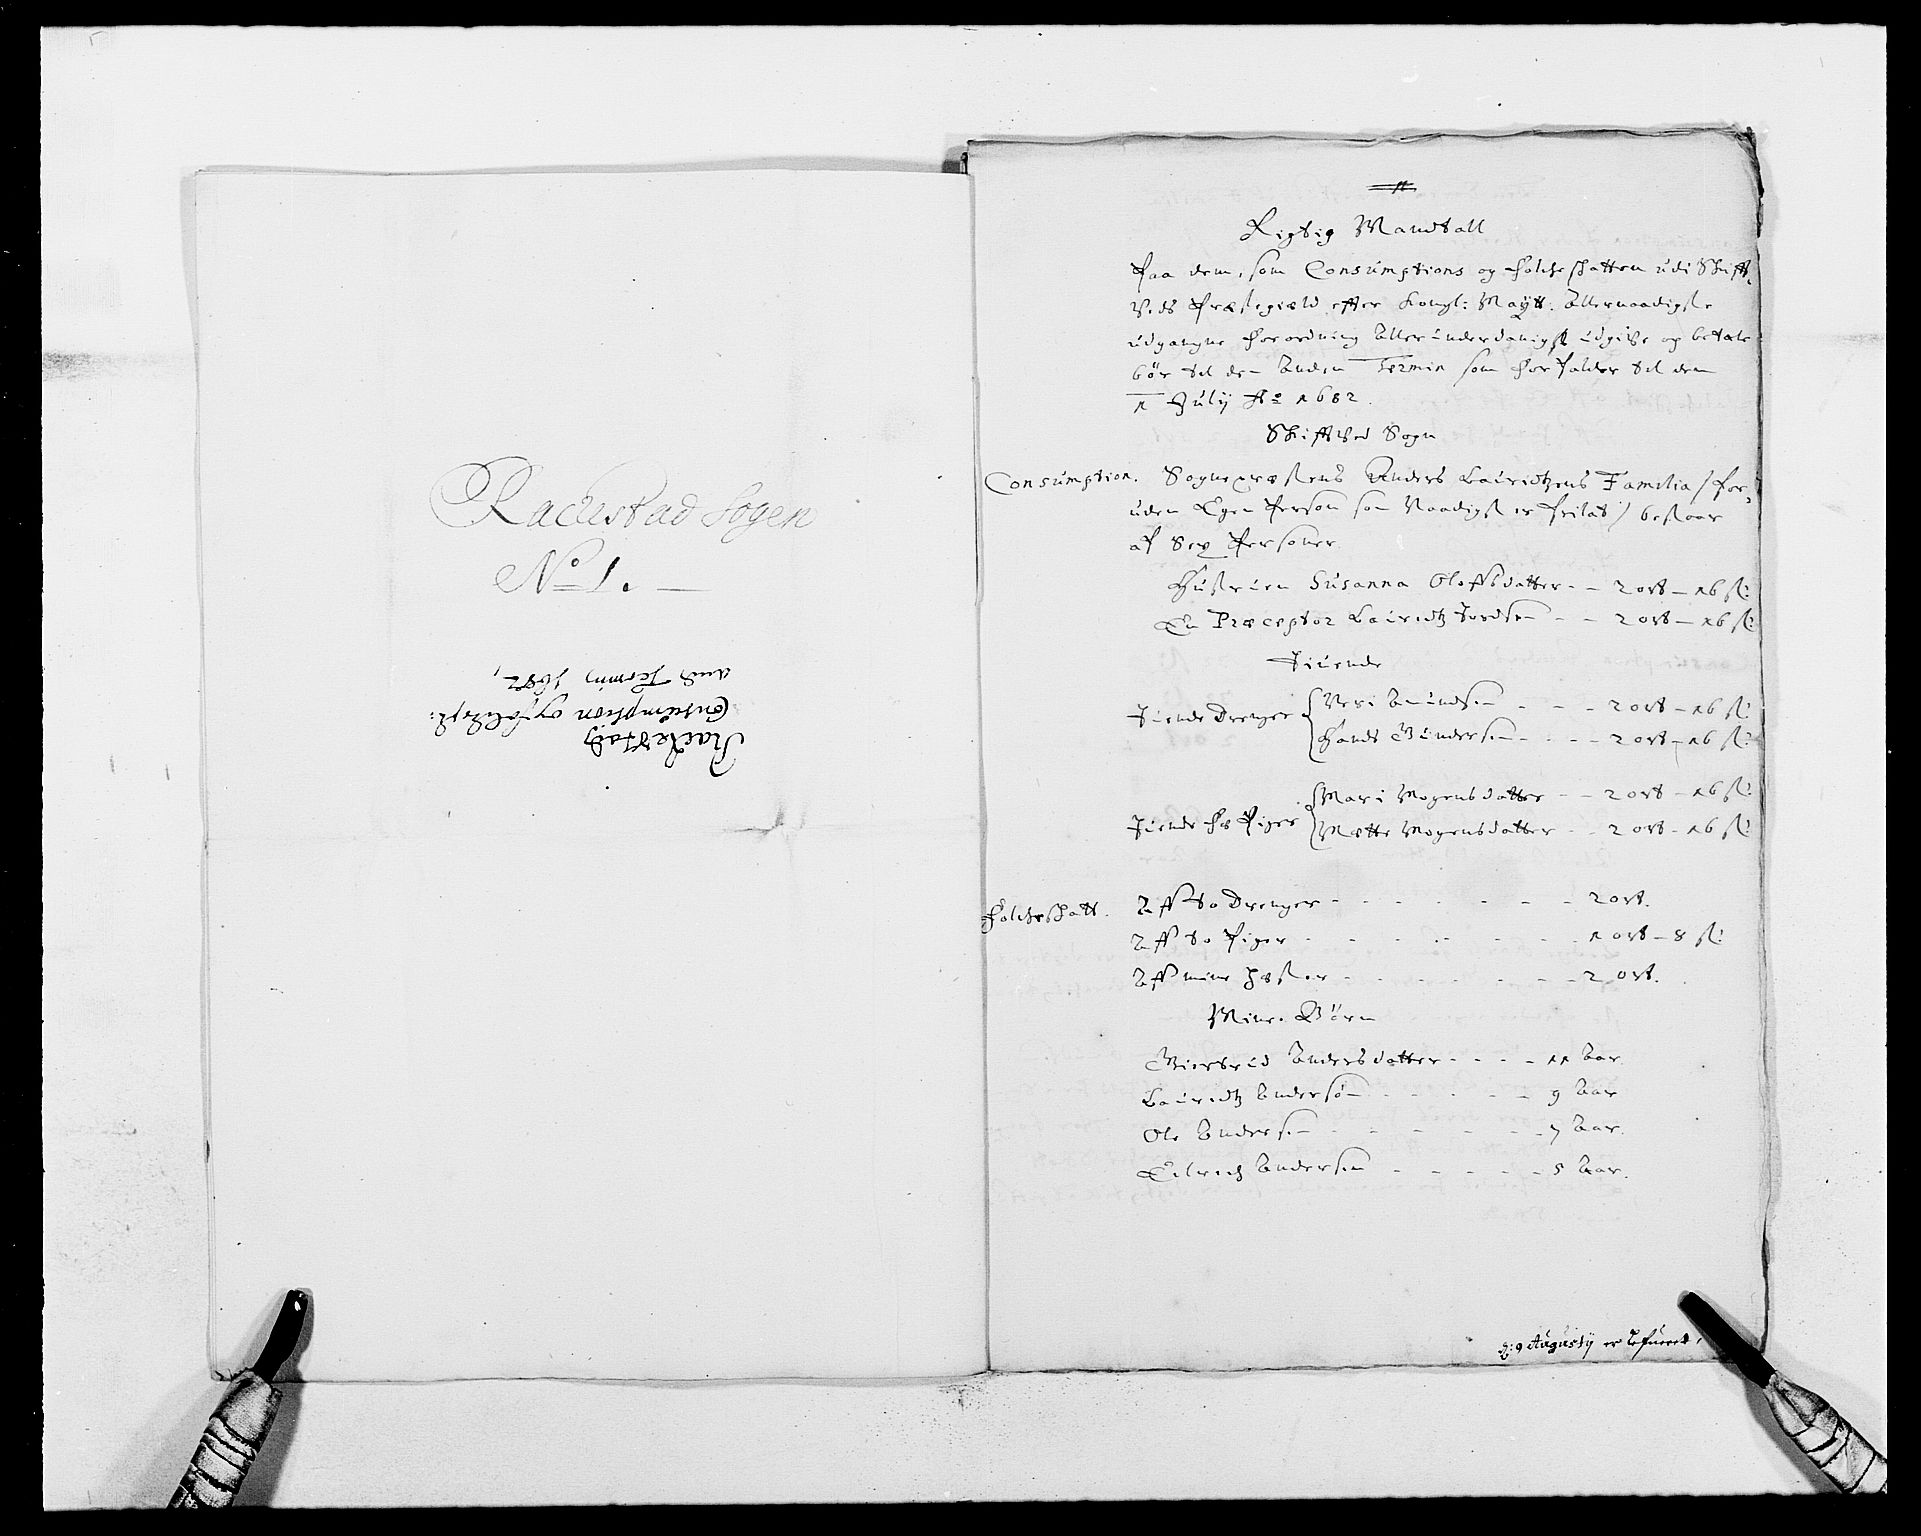 Rachestad Sogen
No 1.
Rackestad
Consumption og folcksk:
and Termin 1682,
Rigtig Mandtall
Paa dem, som Consumptions og Folcheschatten udi Skift-
veds Præstegiæld efter Kongl: Maÿtt. Allernaadigste
udgangne Forordning Allerunderdanigst udgive og betale
bör til den Anden Termin som forfalder til den
1 Julij Ao 1682.
Skiftved Sogn
Consumption. Sognepræstens Anders Lauridtzens Familia / for-
uden Egen Person som Naadigst er frilat / bestaar
af Sex Personer
Hustruen Susanna Olofsdatter - - 2 ort - 16 sk:
En Præceptor Lauridtz Jordsen - - 2 ort - 16 sk:
Tiuende
Tiende Drenger Neri Amundsen - - - 2 ort - 16 sk:
Hands Gundersen - - - 2 ort - 16 sk:
Tiende Piger Mari Mogensdatter - - 2 ort - 16 sk:
Mætte Mogensdatter - - 2 ort - 16 sk:
Folcheschatt. Aff to Drenger - - - - - - 2 ort.
Aff to Piger - - - - - - 1 ort - 8 sk:
Aff mine Hæster - - - - - - 2 ort.
Mine Börn
Giertrud Andersdatter - - - - 11 Aar.
Lauridtz Andersön - - - - - 9 Aar
Ole Andersen - - - - - 7 Aar.
Eilrich Andersen - - - - - 5 Aar.
d: 9 Augustij er lefueret,